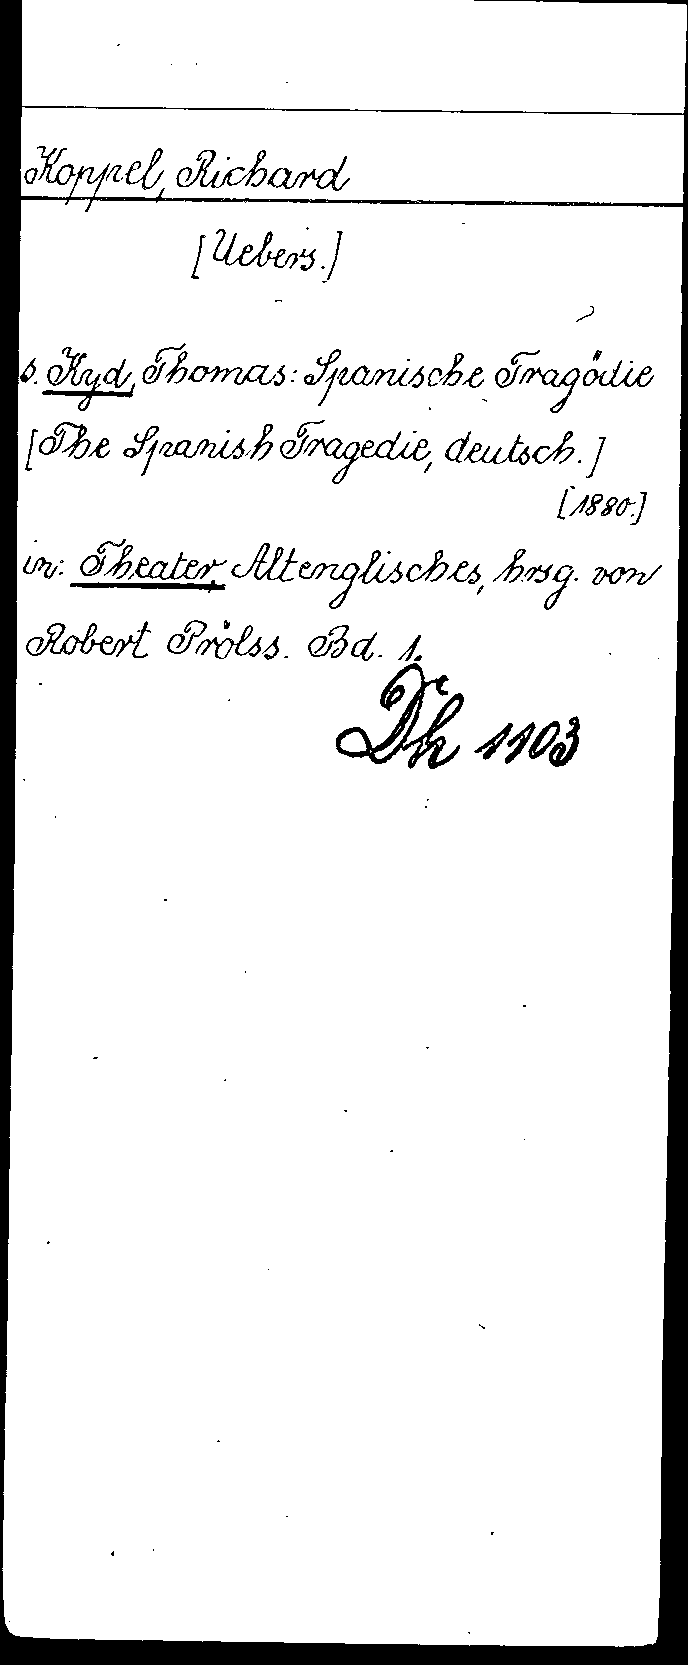 Koppel, Richard
[Uebers.]
s. Kyd, Thomas: Spanische Tragödie
[The Spanish Tragedie, deutsch.]
[1880.]
in: Theater, Altenglisches, hrsg. von
Robert Prölss. Bd. 1.
Dk 1103